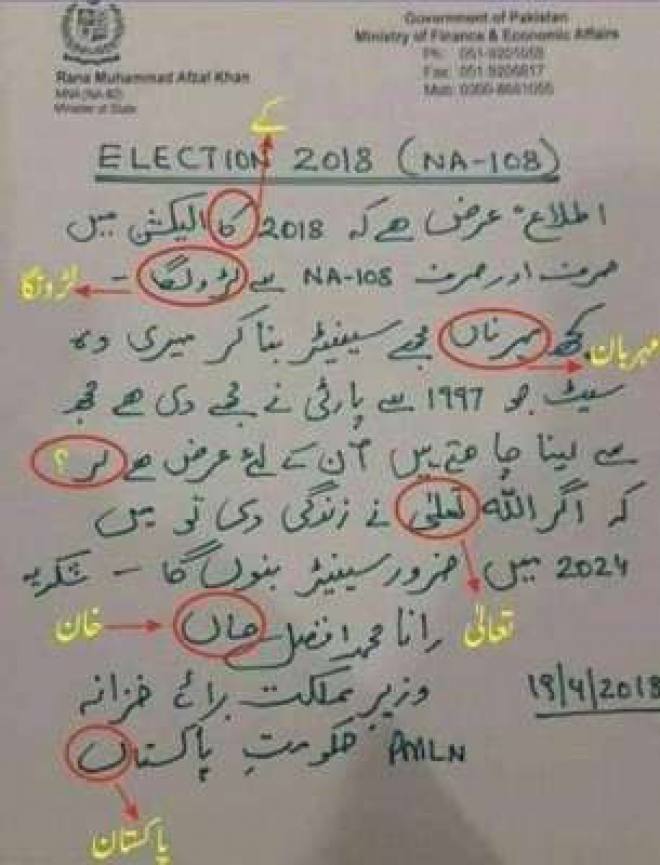 Government of Pakistan
Ministry of Finance & Economic Affairs
Ph: 051-9201058
Fax: 051-9206817
Mob: 0300-8661055
Rana Muhammad Afzal Khan
MNA (NA-82)
Minister of State
کے
ELECTION 2018 (NA-108)
اطلاع عرض ھے کہ 2018 کا الیکشن میں
صرف اور صرف NA-108 سے لڑولگا -
لڑونگا
کچھ مہرناں مجھے سینیٹر بنا کر میری وہ
مہربان
سیٹ جو 1997 سے پارٹی نے مجھے دی ھے مجھ
سے لینا چاھتے ہیں آن کے لئے عرض ھے لر ؟
کہ اگر اللہ تعلیٰ نے زندگی دی تو میں
2024 میں ضرور سینیٹر بنوں گا - شکریہ
تعالیٰ
رانا محمد افضل حاں
خان
وزیر مملکت برائے خزانہ
19/4/2018
حکومتِ پاکستاں PMLN
پاکستان